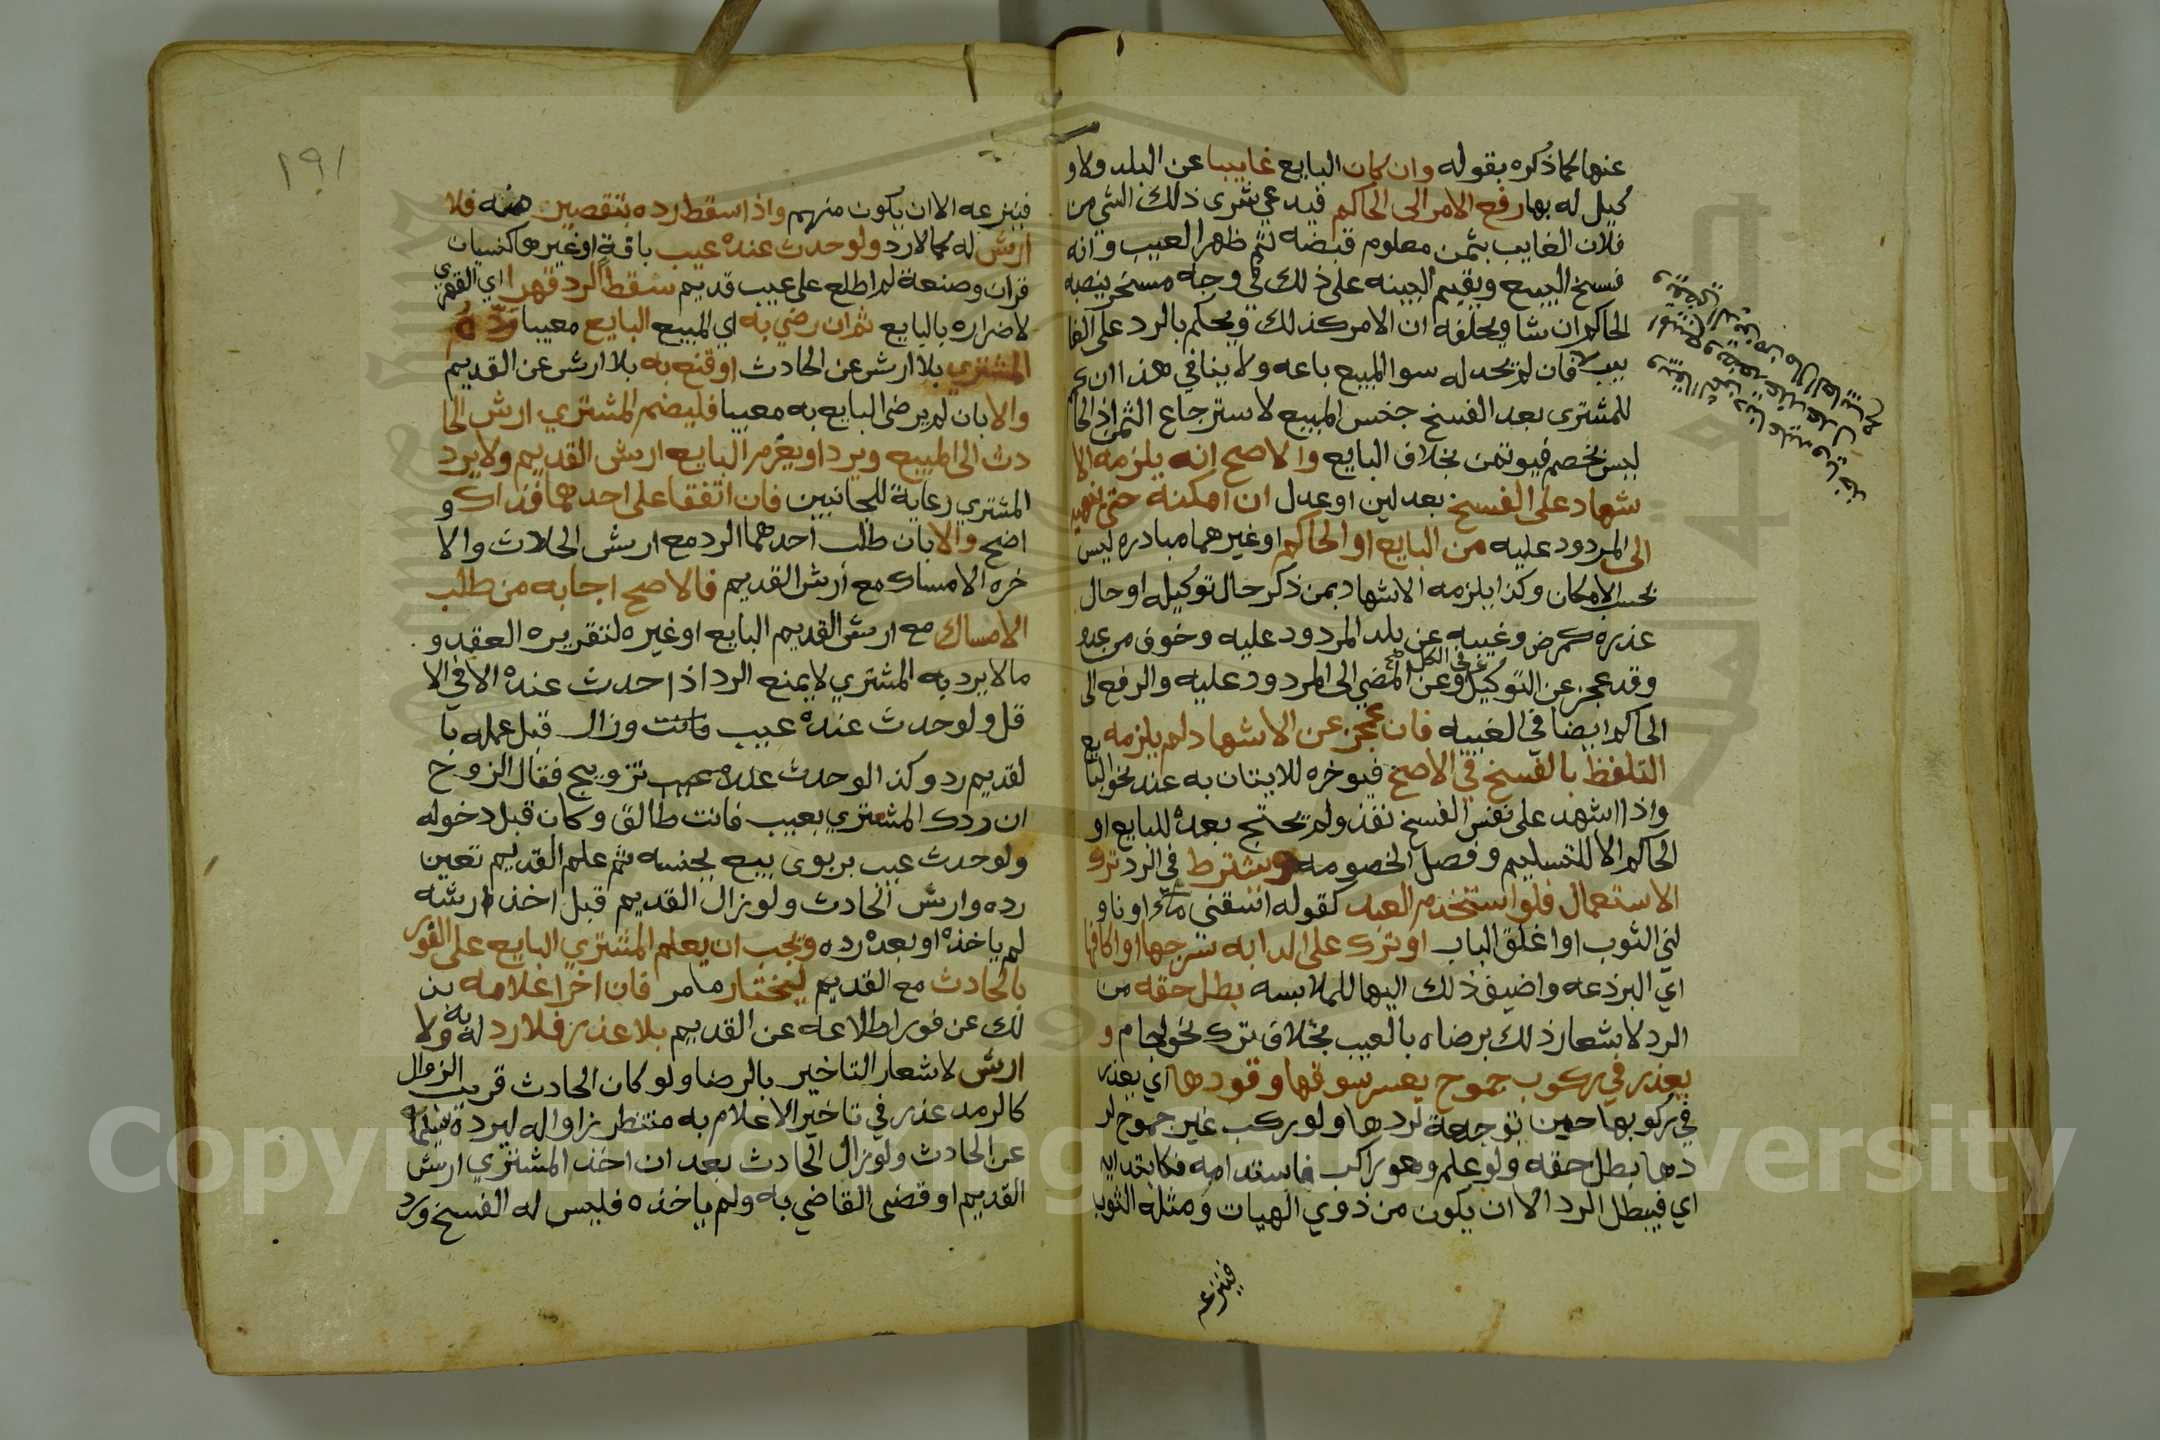 عنها كما ذكره بقوله وان كان البايع غايبا عن البلد ولا و
كيل له بها رفع الامر الى الحاكم فيدعي شرى ذلك الشي من
فلان الغايب بثمن معلوم قبضه ثم ظهر العيب وانه
فسخ البيع ويقيم البينه على ذلك في وجه مسخر ينصبه
الحاكم ان شا ويحلفه ان الامر كذلك ويحكم بالرد على الغا
يب فان لم يجد له سوا المبيع باعه ولا ينافي هذا ان
للمشترى بعد الفسخ حبس المبيع لاسترجاع الثمن اذ الحا
ليس بخصم فيوتمن بخلاف البايع والاصح انه يلزمه الا
شهاد على الفسخ بعدلين او عدل ان امكنه حتى ينهيه
الى المردود عليه من البايع او الحاكم او غيرهما مبادره ليس
بحسب الامكان وكذا يلزمه الاشهاد بمن ذكر حال توكيله او حال
عذره كمرض وغيبه عن بلد المردود عليه وخوف من عدو
وقد عجز عن التوكيل في الكل وعن المضي الى المردود عليه والرفع الى
الحاكم ايضا في الغيبه فان عجز عن الاشهاد لم يلزمه
التلفظ بالفسخ في الاصح فيوخره للاتيان به عند نحو البايع
واذا اشهد على نفس الفسخ نفذ ولم يحتج بعده للبايع او
الحاكم الا للتسليم وفصل الخصومه ويشترط في الرد ترك
الاستعمال فلو استخدم العبد كقوله اسقني ماء او ناو
لني الثوب او اغلق الباب او ترك على الدابه سرجها او اكافها
اي البرذعه واضيف ذلك اليها للملابسه بطل حقه من
الرد لاشعار ذلك برضاه بالعيب بخلاف ترك نحو لجام و
يعذر في ركوب جموح يعسر سوقها وقودها اي يعذر
في ركوبها حين توجهه لردها ولو ركب غير جموح لر
دها بطل حقه ولو علم وهو راكب فاستدامه فكابتدايه
اي فيبطل الرد الا ان يكون من ذوي الهيات ومثله الثوب
فينزعه
١٩١
فينزعه الا ان يكون منهم واذا سقط رده بتقصير منه فلا
ارش له كما لا رد ولو حدث عنده عيب باقة او غيرها كنسيان
قران وصنعة ثم اطلع على عيب قديم سقط الرد قهرا اي القهري
لاضراره بالبايع ثم ان رضي به اي المبيع البايع معيبا رده
المشتري بلا ارش عن الحادث او قنع به بلا ارش عن القديم
والا بان لم يرضى البايع به معيبا فليضم المشتري ارش الحا
دث الى المبيع ويرد او يغرم البايع ارش القديم ولا يرد
المشتري رعاية للجانبين فان اتفقا على احدهما فذاك و
اضح والا بان طلب احدهما الرد مع ارش الحادث والا
خره الامساك مع ارش القديم فالاصح اجابه من طلب
الامساك مع ارش القديم البايع او غيره لتقريره العقد و
ما لا يرد به المشتري لا يمنع الرد اذا حدث عنده الا في الا
قل ولو حدث عنده عيب وزال قبل علمه با
لقديم رد وكذا لو حدث عنده عيب تزويج فقال الزوج
ان ردك المشتري بعيب فانت طالق وكان قبل دخوله
ولو حدث عيب بربوى بيع بجنسه ثم علم القديم تعين
رده وارش الحادث ولو زال القديم قبل اخذ ارشه
لم ياخذه او بعده رده ويجب ان يعلم المشتري البايع على الفور
بالحادث مع القديم ليختار ما مر فان اخر اعلامه بذ
لك عن فور اطلاعه عن القديم بلا عذر فلا رد له به ولا
ارش لاشعار التاخير بالرضا ولو كان الحادث قريب الزوال
كالرمد عذر في تاخير الاعلام به منتظر زواله ليرده سليما
عن الحادث ولو زال الحادث بعد ان اخذ المشتري ارش
القديم او قضى القاضي به ولم ياخذه فليس له الفسخ ورد
Copyright © King Saud University